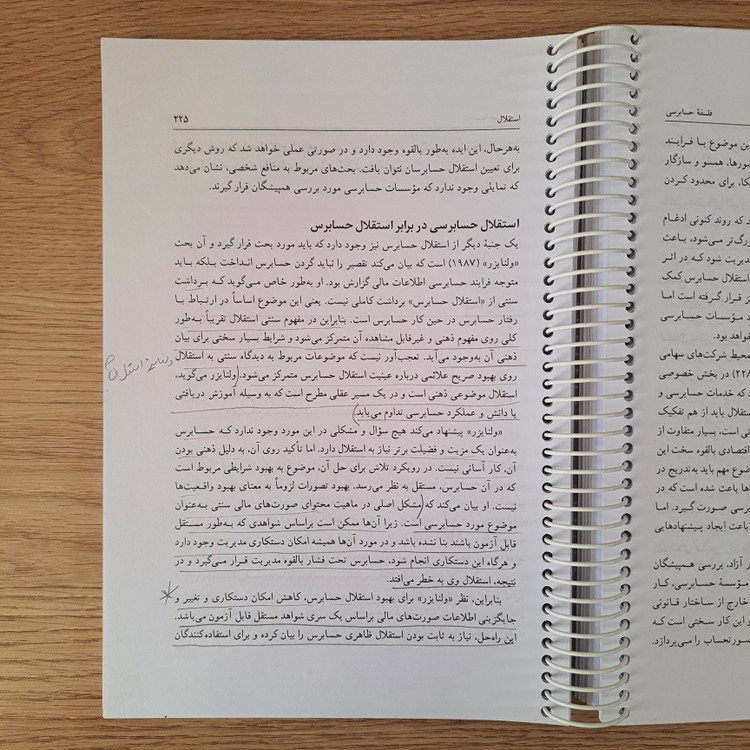 ۲۲۵
استقلال
به‌هرحال، این ایده به‌طور بالقوه وجود دارد و در صورتی عملی خواهد شد که روش دیگری
برای تعیین استقلال حسابرسان نتوان یافت. بحث‌های مربوط به منافع شخصی، نشان می‌دهد
که تمایلی وجود ندارد که مؤسسات حسابرسی مورد بررسی همپیشگان قرار گیرند.
استقلال حسابرسی در برابر استقلال حسابرس
یک جنبۀ دیگر از استقلال حسابرس نیز وجود دارد که باید مورد بحث قرار گیرد و آن بحث
«ولنایزر» (۱۹۸۷) است که بیان می‌کند تقصیر را نباید گردن حسابرس انداخت بلکه باید
متوجه فرایند حسابرسی اطلاعات مالی گزارش بود. او به‌طور خاص می‌گوید که برداشت
سنتی از «استقلال حسابرس» برداشت کاملی نیست. یعنی این موضوع اساساً در ارتباط با
رفتار حسابرس در حین کار حسابرس است. بنابراین در مفهوم سنتی استقلال تقریباً به‌طور
کلی روی مفهوم ذهنی و غیرقابل مشاهده آن متمرکز می‌شود و شرایط بسیار سختی برای بیان
ذهنی آن به‌وجود می‌آید. تعجب‌آور نیست که موضوعات مربوط به دیدگاه سنتی به استقلال
روی بهبود صریح علائمی درباره عینیت استقلال حسابرس متمرکز می‌شود. ولنایزر می‌گوید،
استقلال موضوعی ذهنی است و در یک مسیر عقلی مطرح است که به وسیله آموزش دریافتی
یا دانش و عملکرد حسابرس تداوم می‌یابد.
«ولنایزر» پیشنهاد می‌کند هیچ سؤال و مشکلی در این مورد وجود ندارد که حسابرس
به‌عنوان یک مزیت و فضیلت برتر نیاز به استقلال دارد. اما تأکید روی آن، به دلیل ذهنی بودن
آن، کار آسانی نیست. در رویکرد تلاش برای حل آن، موضوع به بهبود شرایطی مربوط است
که در آن حسابرس، مستقل به نظر می‌رسد. بهبود تصورات لزوماً به معنای بهبود واقعیت‌ها
نیست. او بیان می‌کند که مشکل اصلی در ماهیت محتوای صورت‌های مالی سنتی به‌عنوان
موضوع مورد حسابرسی است. زیرا آن‌ها ممکن است براساس شواهدی که به‌طور مستقل
قابل آزمون باشند بنا نشده باشد و در مورد آن‌ها همیشه امکان دستکاری مدیریت وجود دارد
و هرگاه این دستکاری انجام شود، حسابرس تحت فشار بالقوه مدیریت قرار می‌گیرد و در
نتیجه، استقلال وی به خطر می‌افتد.
بنابراین، نظر «ولنایزر» برای بهبود استقلال حسابرس، کاهش امکان دستکاری و تغییر و
جایگزینی اطلاعات صورت‌های مالی براساس یک سری شواهد مستقل قابل آزمون می‌باشد.
این راه‌حل، نیاز به ثابت بودن استقلال ظاهری حسابرس را بیان کرده و برای استفاده‌کنندگان
فلسفۀ حسابرسی
ین موضوع با فرایند
سورها، همسو و سازگار
یکا، برای محدود کردن
د که روند کنونی ادغام
رگ‌تر می‌شود، باعث
مدیریت شود که در اثر
استقلال حسابرس کمک
ز قرار گرفته است اما
د مؤسسات حسابرسی
خواهد بود.
محیط شرکت‌های سهامی
۲۲۸) در بخش خصوصی
د که خدمات حسابرسی و
ستقلال باید از هم تفکیک
نی است، بسیار متفاوت از
اقتصادی بالقوه سخت این
ضوع مهم باید به‌تدریج در
ها باعث شده است که در
برسی صورت گیرد. اما
باعث ایجاد پیشنهادهایی
ر آزاد، بررسی همپیشگان
مؤسسۀ حسابرسی، کار
خارج از ساختار قانونی
و این کار سختی است که
صورتحساب را می‌پردازد.